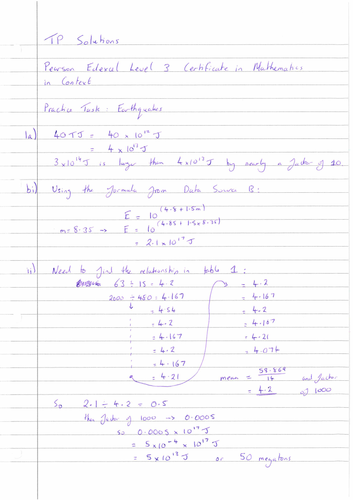 TP Solutions
Pearson Edexcel Level 3 Certificate in Mathematics
in Context
Practice Task : Earthquakes
1a) 40 TJ = 40 x 10¹² J
= 4 x 10¹³ J
3 x 10¹⁴ J is larger than 4 x 10¹³ J by nearly a factor of 10
bi) Using the formula from Data Source B:
E = 10^(4.8 + 1.5m)
m = 8.35 → E = 10
= 2.1 x 10¹⁷ J
ii) Need to find the relationship in table 1 :
63 ÷ 15 = 4.2 = 4.2
2000 ÷ 480 = 4.167 = 4.167
= 4.54 = 4.2
= 4.2 = 4.187
= 4.167 = 4.21
= 4.2 = 4.076
= 4.167
= 4.21
mean = 58.869 / 14 and factor
= 4.2 of 1000
So 2.1 ÷ 4.2 = 0.5
then factor of 1000 → 0.0005
So 0.0005 x 10¹⁷ J
= 5 x 10⁻⁴ x 10¹⁷ J
= 5 x 10¹³ J or 50 megatons